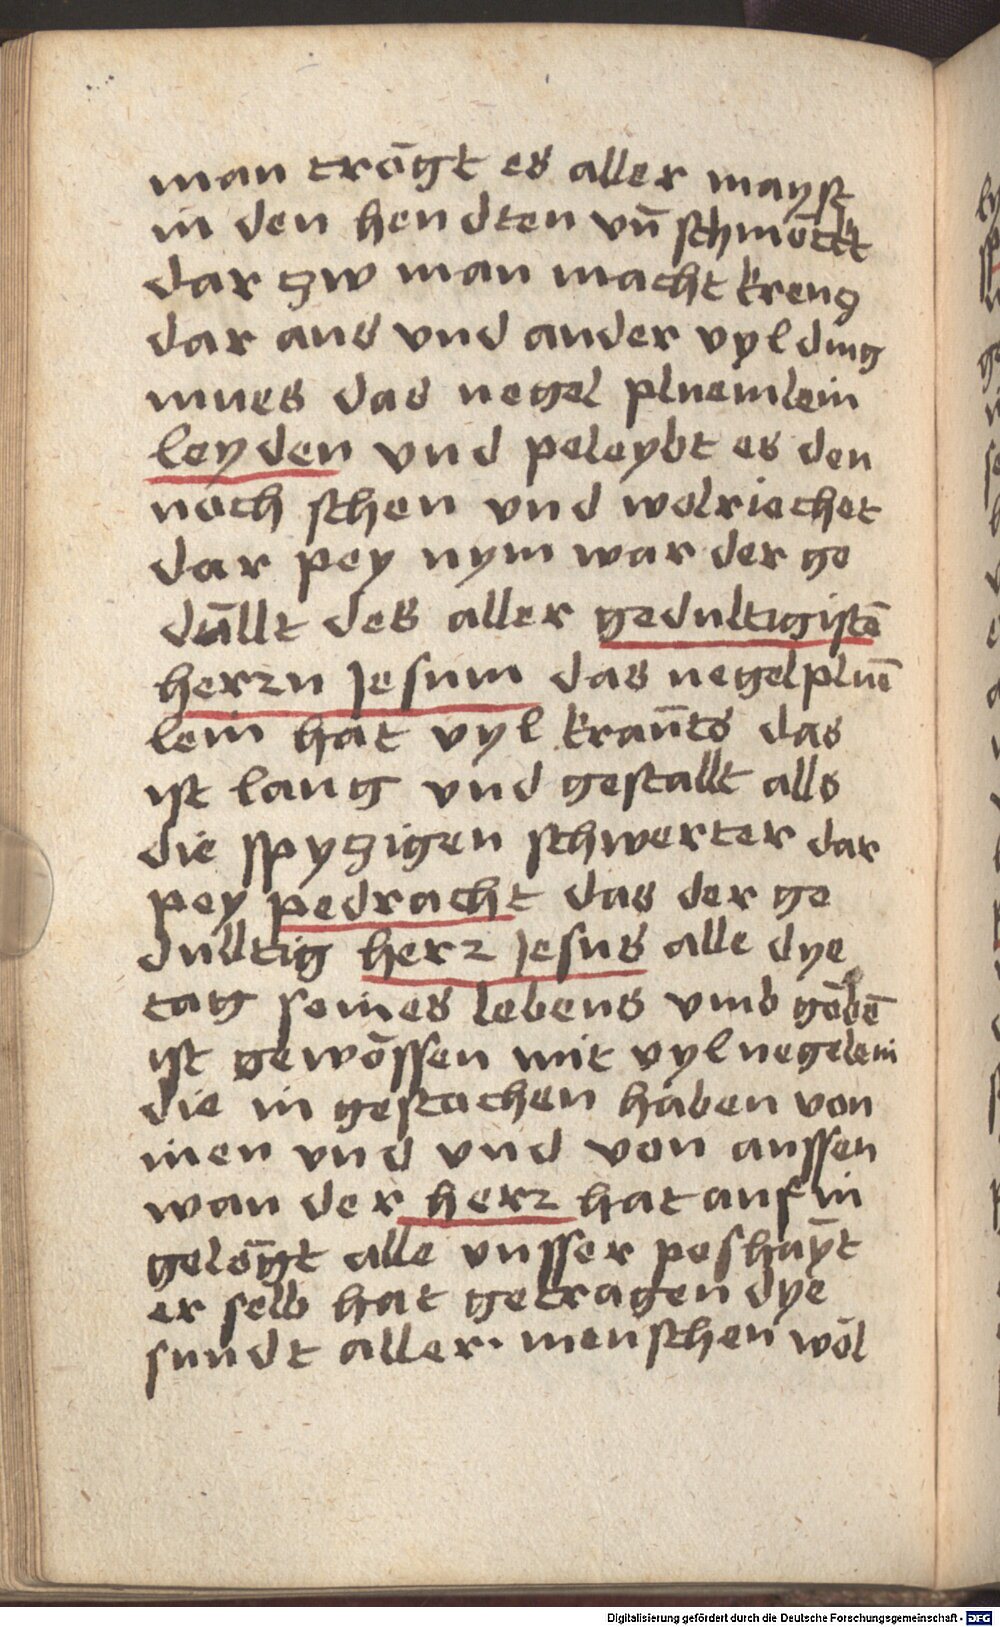 man trögt es aller mayst
in den hendten vn̄ schmöckt
dar zw man macht krenz
dar aus vnd ander vyl ding
mues das negel pluemlein
leyden vnd peleybt es den
noch schen vnd wolriechet
dar pey nym war der ge
dūllt des aller gedultigistē
herrn Jesum das negelpluē
lein hat vyl kraūts das
ist lang vnd gestallt alls
die spyzigen schwerter dar
pey pedracht das der ge
dulltig herr Jesus alle dye
tag seines lebens vmb gebē
ist gewössen mit vyl negelein
die in gestachen haben von
inen vnd vnd von aussen
wan der herr hat auf in
gelögt alle vnsser poshaÿt
er selb hat getragen dye
sundt aller menschen wöl
Digitalisierung gefördert durch die Deutsche Forschungsgemeinschaft - DFG